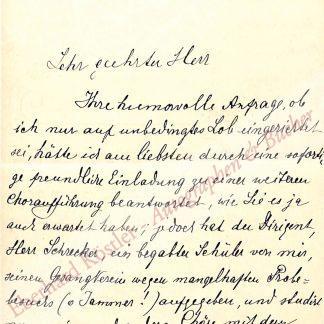 Sehr geehrter Herr
Ihre humorvolle Anfrage, ob
ich nur auf unbedingtes Lob eingerichtet
sei, hätte ich am liebsten durch eine soforti-
ge freundliche Einladung zu einer weiteren
Choraufführung beantwortet, wie Sie es ja
auch erwartet haben; jedoch hat der Dirigent,
Herr Schreker ein begabter Schüler von mir,
seinen Gesangverein wegen mangelhaften Probe-
besuers (o Jammer!) aufgegeben, und studirt
Chöre mit dem